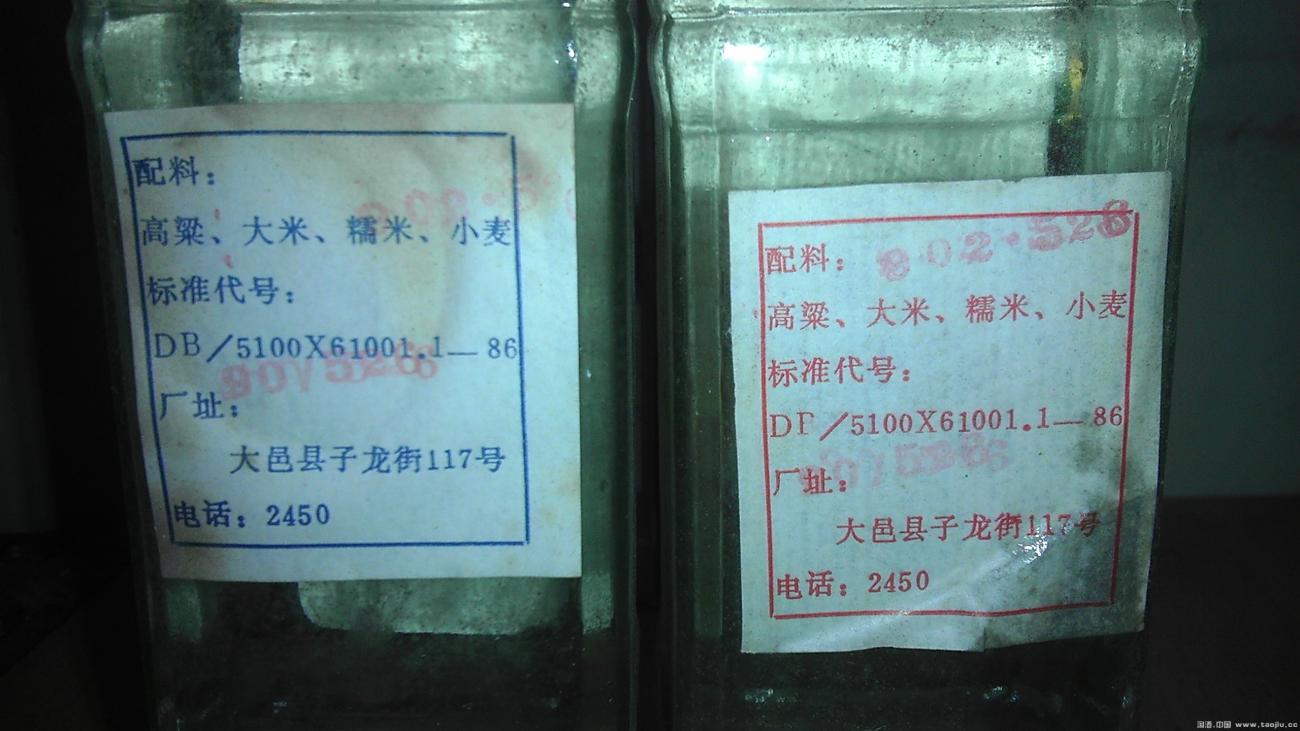 配料：
高粱、大米、糯米、小麦
标准代号：
DB/5100X61001.1—86
厂址：
大邑县子龙街117号
电话：2450
802·526
配料：
高粱、大米、糯米、小麦
标准代号：
DB/5100X61001.1—86
厂址：
大邑县子龙街117号
电话：2450
国酒.中国 www.taojiu.cc